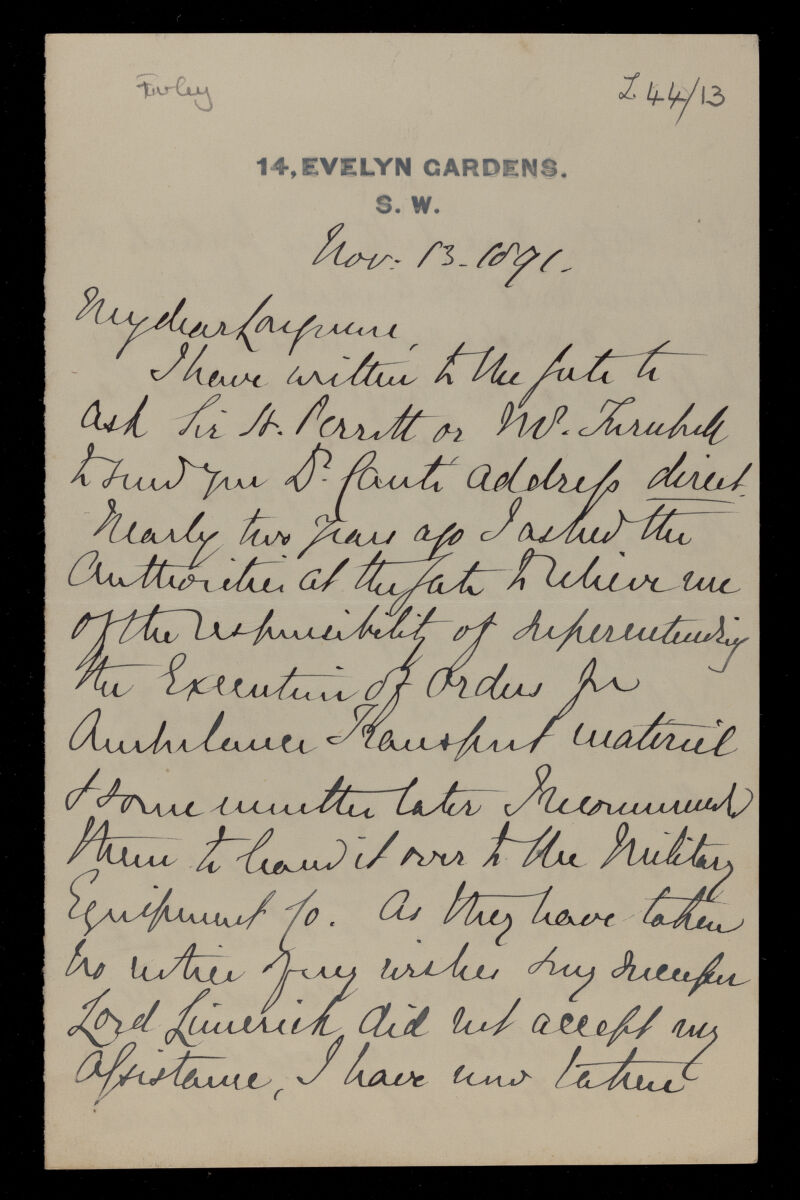 Furley
L.44/13
14, EVELYN GARDENS.
S. W.
Nov. 13. 1891.
My dear Longmore,
I have written to the Gate to
ask Sir H. Perrott or Mr. Turnbull
to send you Dr. Cant's address direct.
Nearly two years ago I asked the
Authorities at the Gate to relieve me
of the responsibility of superintending
the Execution of orders for
Ambulance Transport matériel
& some months later I recommended
them to hand it over to the Military
Equipment Co. As they have taken
no notice of my wishes & my
Lord Limerick did not accept my
Assistance, I have now taken